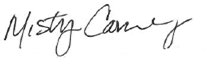 Misty Carney